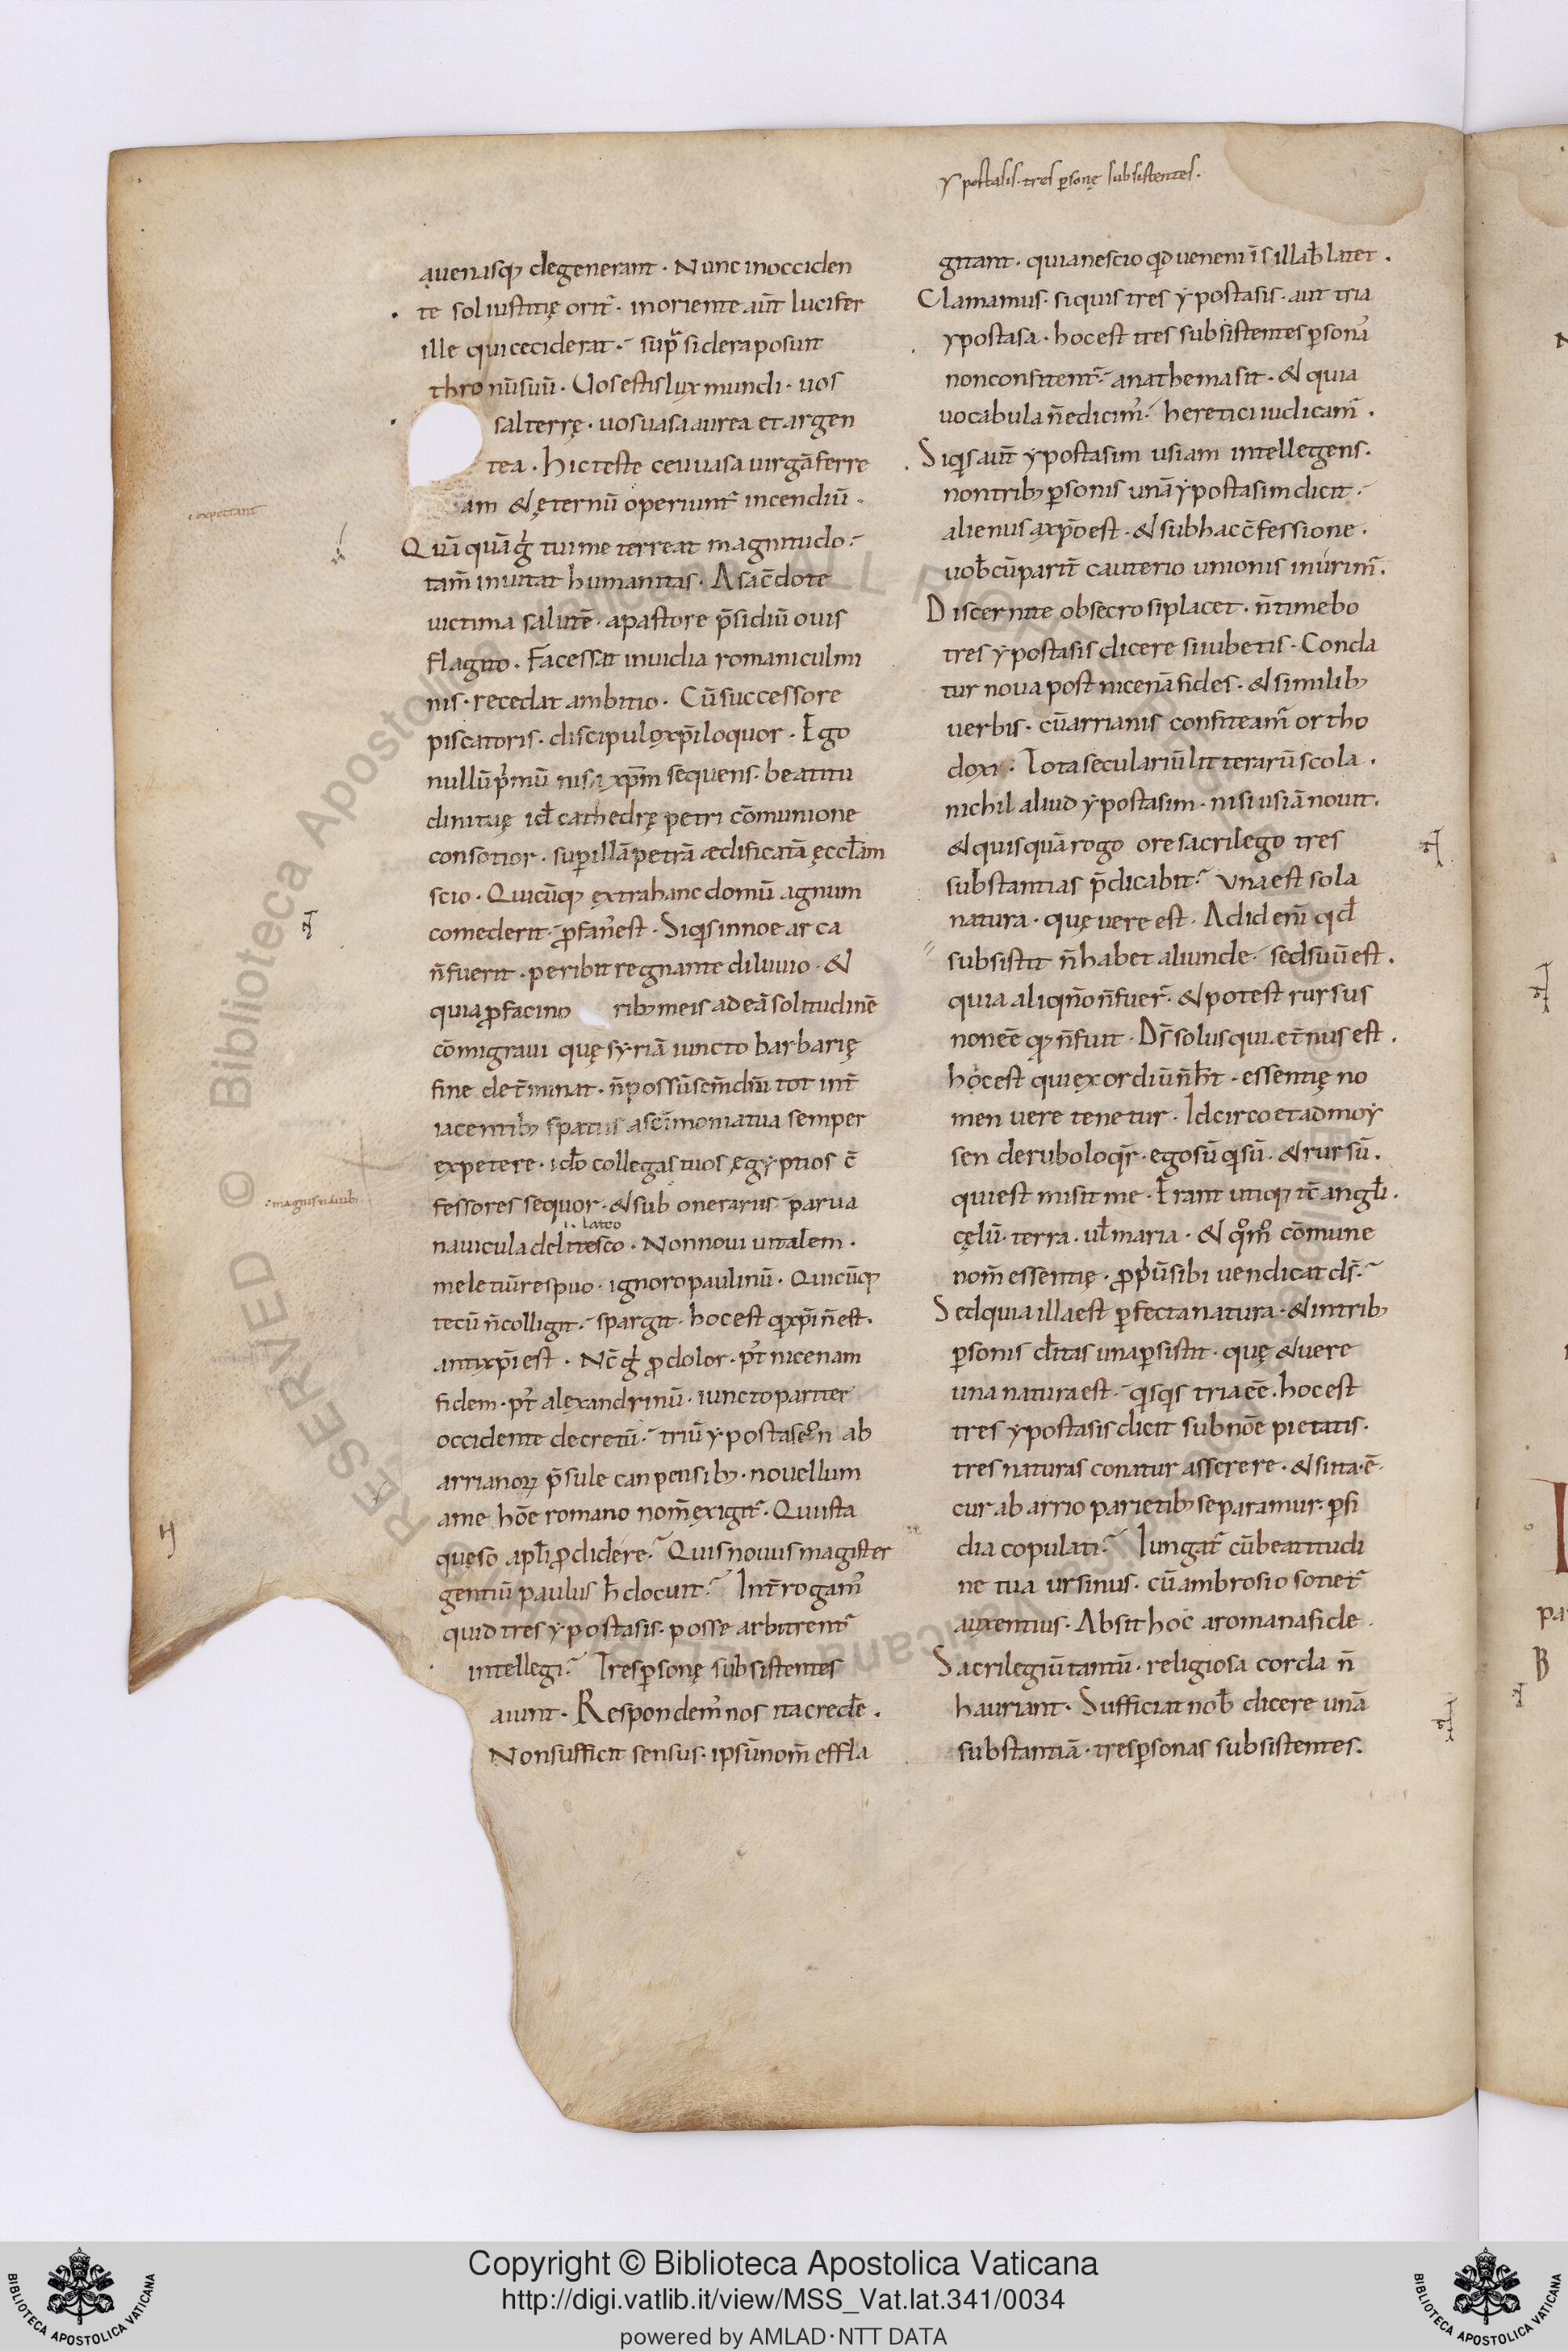 ypostasis· tres ꝑsonę subsistentes·
auenasq; degenerant· Nunc in occiden
te sol iustitię orit᷑· in oriente aut̄ lucifer
ille qui ceciderat· supͣ sidera posuit
thronū suū· Uos estis lux mundi· uos
sal terrę· uos uasa aurea et argen
tea· hic teste ceu uasa uirgā ferre
am & ęternū operiunt᷑ incendiū·
expectant
Quā quā g᷑ tui me terreat magnitudo·
tam̄ inuitat humanitas· A sac̄dote
uictima salutē· a pastore p̄sidiū ouis
flagito· Facessat inuidia romani culmi
nis· recedat ambitio· Cū successore
piscatoris· discipulo xp̄i loquor· Ego
nullū p̍mū nisi xp̄m sequens· beatitu
dini tuę id̄ cathedrę petri cōmunione
consotior· suꝑ illā petrā ædificatā ęccl̄am
scio· Quicūq; extra hanc domū agnum
comederit· ꝓfan᾿ est· Siqͥs in noe arca
n̄ fuerit· peribit regnante diluuio· &
quia ꝓ facino ribꝫ meis ad eā solitudinē
cōmigraui quę syriā iuncto barbarię
fine det̄minat· n̄ possū sc̄m dn̄i tot int̄
iacentibꝫ spatiis a sc̄imonia tua semper
expetere· ido̅ collegas tuos ęgyptios c̄
fessores sequor· & sub onerariis parua
·magnis nauibꝫ
·i· lateo
nauicula delitesco· Non noui uitalem·
meletiū respuo· ignoro paulinū· Quicūq;
tecū n̄ colligit· spargit· hoc est q̍ xp̄i n̄ est·
antixp̄i est· Nc̄ g᷑ ꝓ dolor· p᷑t nicenam
fidem· p᷑t alexandrinū· iuncto pariter
occidente decretū· triū ypostaseon ab
arrianoꝝ p̄sule canpensibꝫ· nouellum
a me hōe romano nom̄ exigit᷑· Qui ista
quęso apl̄i ꝓdidere· Quis nouus magister
gentiū paulus h̄ docuit· Int̄rogam᾿
quid tres ypostasis· posse arbitrent᷑
intellegi· Tres ꝑsonę subsistentes
aiunt· Respondem᾿ nos ita credē·
Non sufficit sensus· ipsū nom̄ effla
gitant· quia nescio qͥd ueneni ī sillab̄ latet·
Clamamus· si quis tres ypostasis· aut tria
ypostasa· hoc est tres subsistentes ꝑsonas
non confitent᷑· anathema sit· & quia
uocabula n̄ edicim᾿· heretici iudicam᷑·
Siqͥs aut̄ ypostasim usiam intellegens·
non tribꝫ ꝑsonis unā ypostasim dicit·
alienus a xp̄o est· & sub hac c̄fessione·
uob̄ cū parit̄ cauterio unionis inurim᷑·
Discernite obsecro si placet· n̄ timebo
tres ypostasis dicere si iubetis· Conda
tur noua post nicenā fides· & similibꝫ
uerbis· cū arrianis confiteam᷑ ortho
doxi· Tota seculariū litterarū scola·
nichil aliud ypostasim· nisi usiā nouit·
& quisquā rogo ore sacrilego tres
substantias p̄dicabit· Una est sola
natura· quę uere est· Ad id eni̅ qd̄
subsistit n̄ habet aliunde· sed suū est·
quia aliqn̄o n̄ fuer᷑· & potest rursus
non ēē q; n̄ fuit· Ds̄ solus qui æt̄nus est·
hoc est qui exordiū n̄ h̄t· essentię no
men uere tenetur· Idcirco et ad moy
sen de rubo loqr᷑· ego sū qͥ sū· & rursū·
qui est misit me· Erant utiq; tc̄ angl̄i·
cęlū· terra· ul̄ maria· & qͦm̊ cōmune
nom̄ essentię· ꝓp̍ū sibi uendicat ds̄·
Sed quia illa est ꝑfecta natura· & in tribꝫ
ꝑsonis d̄itas una ꝑsistit· quę & uere
una natura est· qͥsqͥs tria ēē· hoc est
tres ypostasis dicit sub nōe pietatis·
tres naturas conatur asserere· & si ita· ē·
cur ab arrio parietibꝫ separamur· ꝑfi
dia copulati· Iungat᷑ cū beatitudi
ne tua ursinus· cū ambrosio sotiet᷑
auxentius· Absit hoc a romana fide·
Sacrilegiū tantū· religiosa corda n̄
hauriant· Sufficiat nob̄ dicere unā
substantiā· tres ꝑsonas subsistentes·
pa
B
Biblioteca Apostolica Vaticana
ALL RIGHTS RESERVED ©
Copyright © Biblioteca Apostolica Vaticana
http://digi.vatlib.it/view/MSS_Vat.lat.341/0034
powered by AMLAD·NTT DATA
BIBLIOTECA APOSTOLICA VATICANA
BIBLIOTECA APOSTOLICA VATICANA